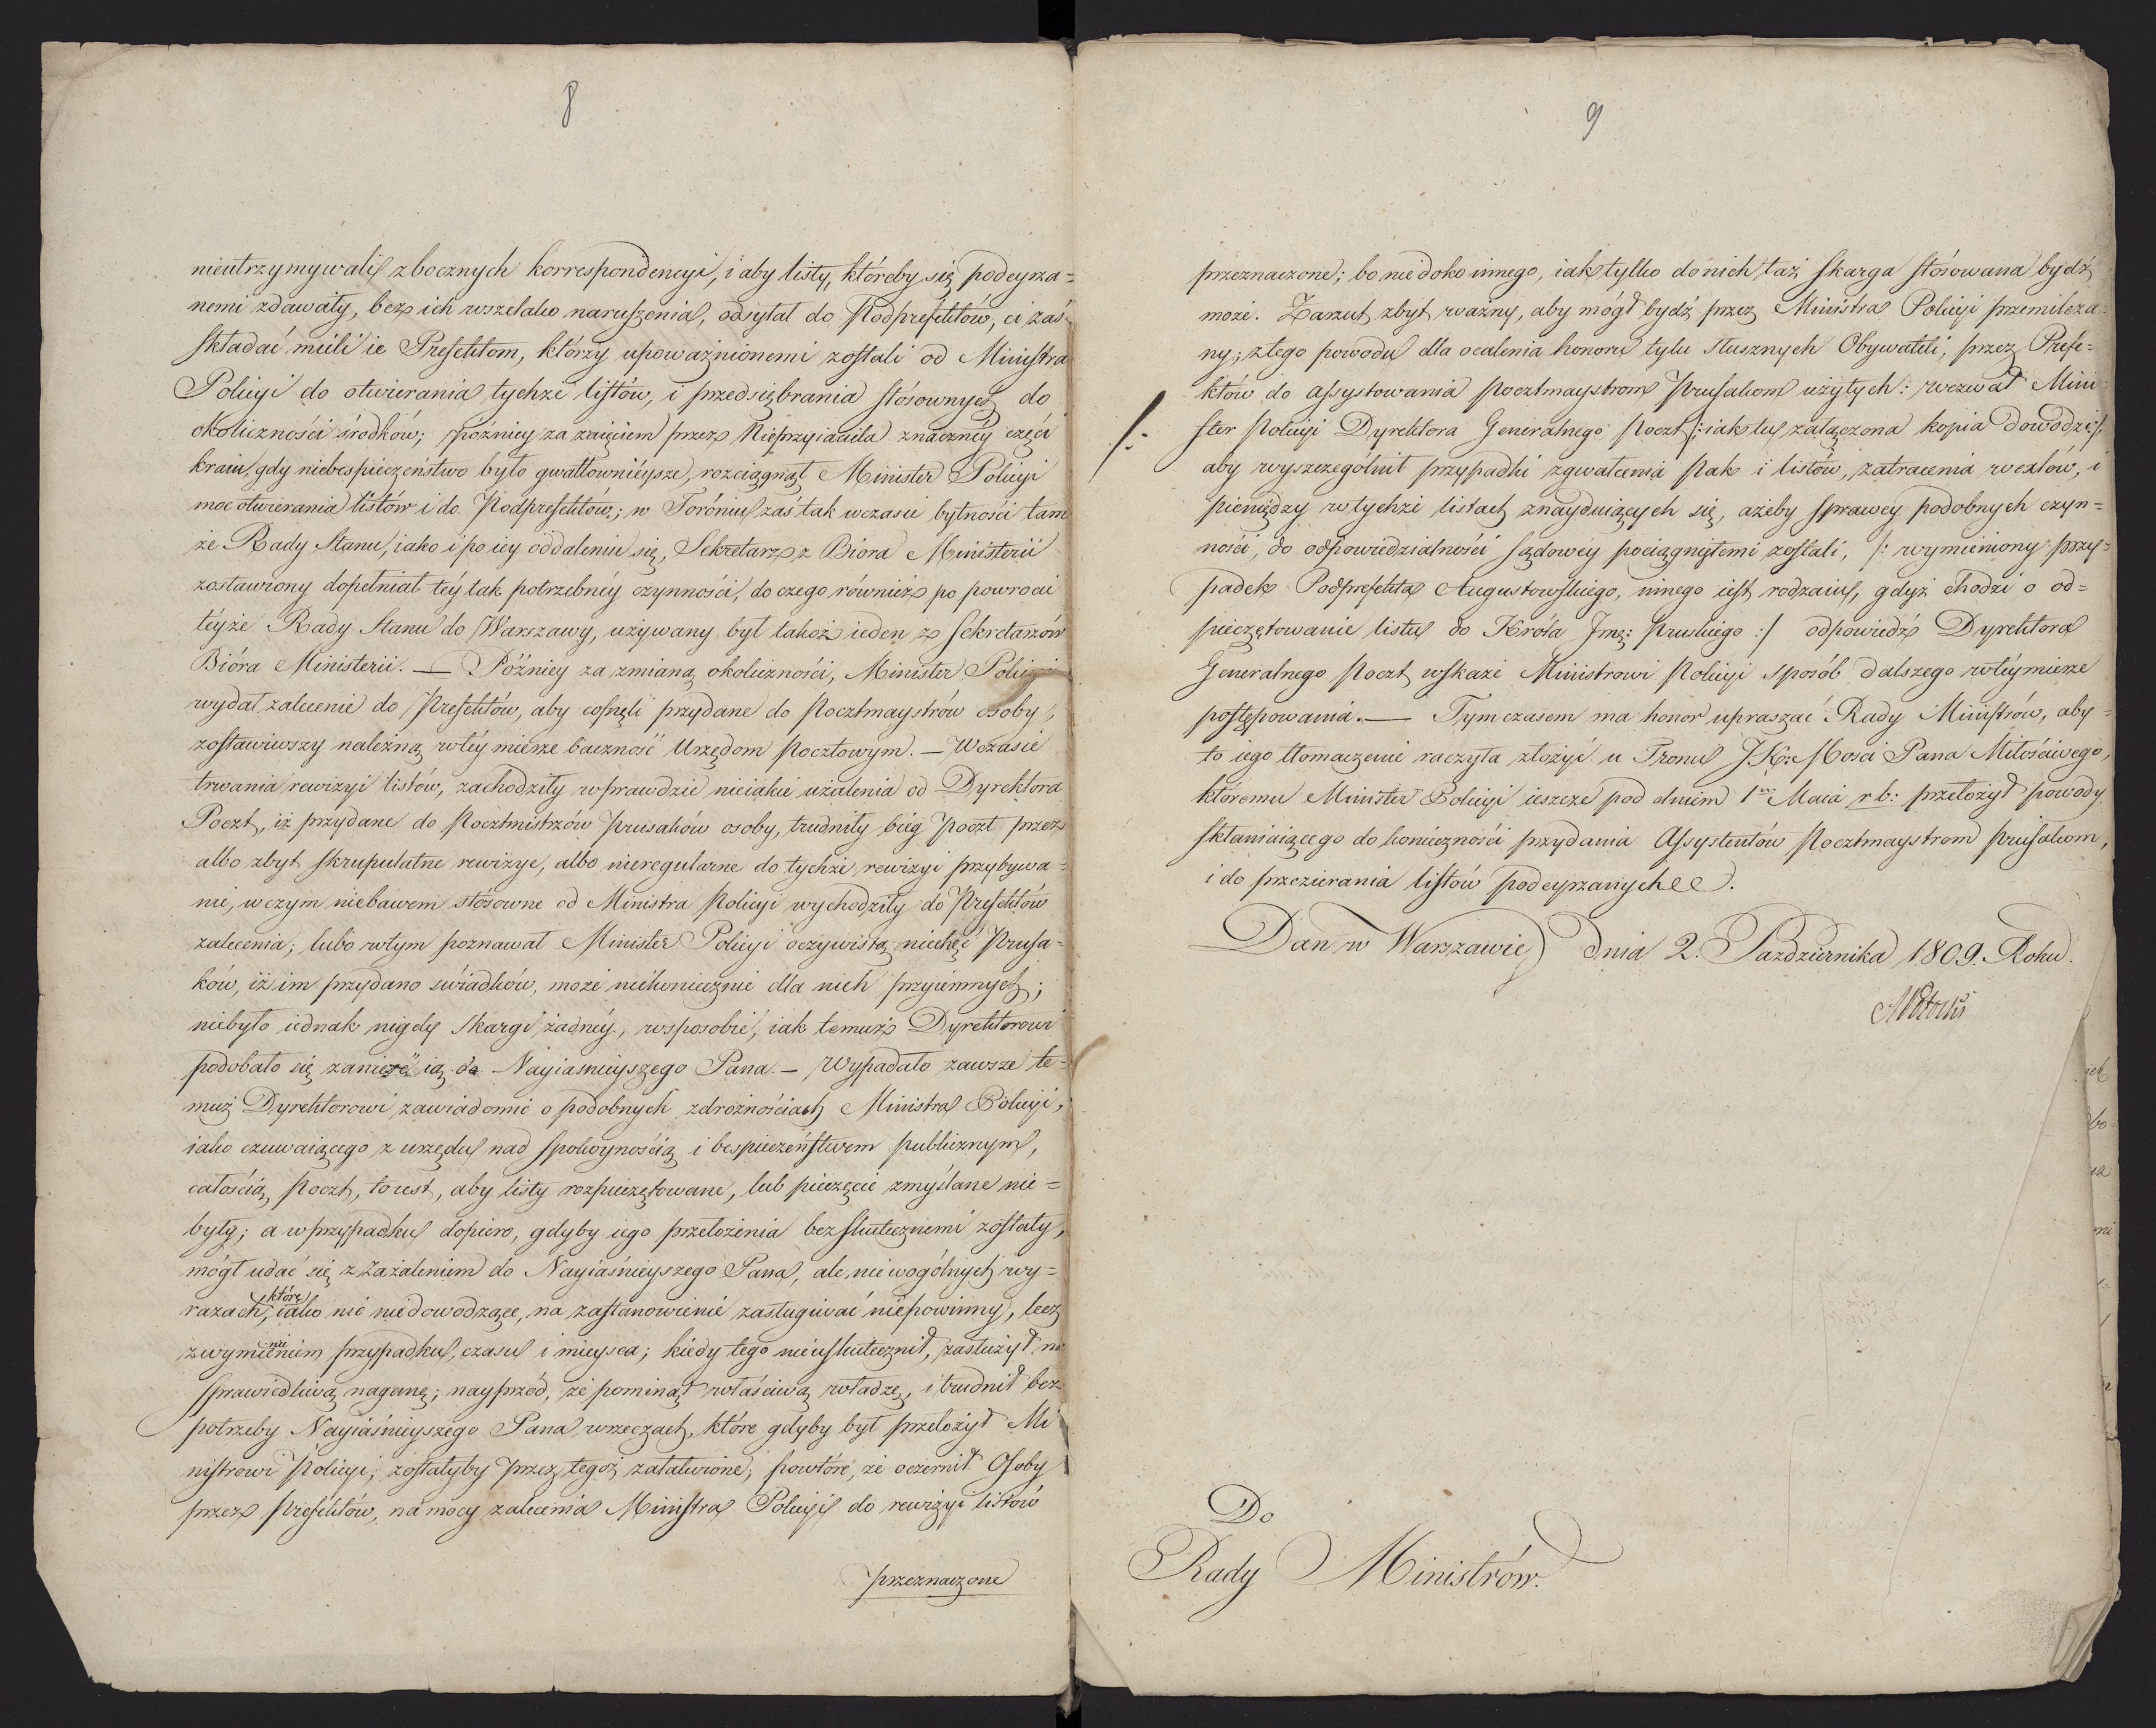 8
nieutrzymywali zbocznych korrespondencyi, i aby listy, któreby się podeyrza=
nemi zdawały, bez ich wszelako naruszenia, odsyłał do Podprefektów, ci zaś
składać mieli ie Prefektom, którzy upoważnionemi zostali od Ministra
Policyi do otwierania tychże listów, i przedsiębrania stósownych do
okoliczności środków; późniey za zaięciem przez Nieprzyiaciela znacznéy części
kraiu, gdy niebespieczeństwo było gwałtownieysze, rozciągnął Minister Policyi
moc otwierania listów i do Podprefektów; w Toróniu zaś tak wczasie bytności tam
że Rady Stanu, iako i po iey oddaleniu się, Sekretarz z Bióra Ministerii
zostawiony dopełniał téy tak potrzebnéy czynności, do czego również po powrocie
téyże Rady Stanu do Warszawy, używany był takoż ieden z Sekretarzów
Bióra Ministerii. — Późniey za zmianą okoliczności, Minister Policyi
wydał zalecenie do Prefektów, aby cofnęli przydane do Pocztmaystrów osoby,
zostawiwszy należną wtéy mierze baczność Urzędom Pocztowym. — Wczasie
trwania rewizyi listów, zachodziły wprawdzie nieiakie użalenia od Dyrektora
Poczt, iż przydane do Pocztmistrzów Prusaków osoby, trudniły bieg Poczt przez
albo zbyt skrupulatne rewizye, albo nieregularne do tychże rewizyi przybywa=
nie, wczym niebawem stósowne od Ministra Policyi wychodziły do Prefektów
zalecenia; lubo wtym poznawał Minister Policyi oczywistą niechęć Prusa=
ków, iż im przydano świadków, może niekoniecznie dla nich przyiemnych;
niebyło iednak nigdy skargi żadnéy, wsposobie, iak temuż Dyrektorowi
podobało się zanieść ią do Nayiaśnieyszego Pana. — Wypadało zawsze te=
muż Dyrektorowi zawiadomić o podobnych zdrożnościach Ministra Policyi,
iako czuwaiącego z urzędu nad spokoynością i bespieczeństwem publicznym,
całością Poczt, toiest, aby listy rozpieczętowane, lub pieczęcie zmyślane nie=
były; a wprzypadku dopiero, gdyby iego przełożenia bezskutecznemi zostały,
mógł udać się z Zażaleniem do Nayiaśnieyszego Pana, ale nie wogólnych wy=
razach, które iako nic niedowodzące, na zastanowienie zasługiwać niepowinny, lecz
zwymienieniem przypadku, czasu i mieysca; kiedy tego nieuskutecznił, zasłużył na
sprawiedliwą naganę; nayprzód, że pominął właściwą władzę, i trudnił bez
potrzeby Nayiaśnieyszego Pana wrzeczach, które gdyby był przełożył Mi
nistrowi Policyi, zostałyby przez tegoż załatwione; powtóre, że oczernił Osoby
przez Prefektów, na mocy zalecenia Ministra Policyi do rewizyi listów
przeznaczone
9
przeznaczone; bo nie do ko innego, iak tylko do nich taż skarga stósowana bydź
może. Zarzut zbyt ważny, aby mógł bydź przez Ministra Policyi przemilcza=
ny; ztego powodu dla ocalenia honoru tylu słusznych Obywateli, przez Prefe=
któw do assystowania Pocztmaystrom Prusakom użytych: wezwał Mini=
ster Policyi Dyrektora Generalnego Poczt /: iak tu załączona kopia dowodzi :/
aby wyszczególnił przypadki zgwałcenia Pak i listów, zatracenia wexlów, i
pieniędzy wtychże listach znayduiących się, ażeby sprawcy podobnych czyn=
ności, do odpowiedzialności sądowéy pociągniętemi zostali, /: wymieniony przy=
padek Podprefekta Augustowskiego, innego iest rodzaiu, gdyż chodzi o od=
pieczętowanie listu do Króla Jmę: Pruskiego :/ odpowiedź Dyrektora
Generalnego Poczt wskaże Ministrowi Policyi sposób dalszego wtéymierze
postępowania. — Tymczasem ma honor upraszać Rady Ministrów, aby=
to iego tłomaczenie raczyła złożyć u Tronu J.K: Mości Pana Miłościwego,
któremu Minister Policyi ieszcze pod dniem 1m Maia r b: przełożył powody
skłaniaiącego do konieczności przydania Assystentów Pocztmaystrom Prusakom,
i do przezierania listów podeyrzanych
Dan w Warszawie dnia 2. Października 1809. Roku.
Do
Rady Ministrów.